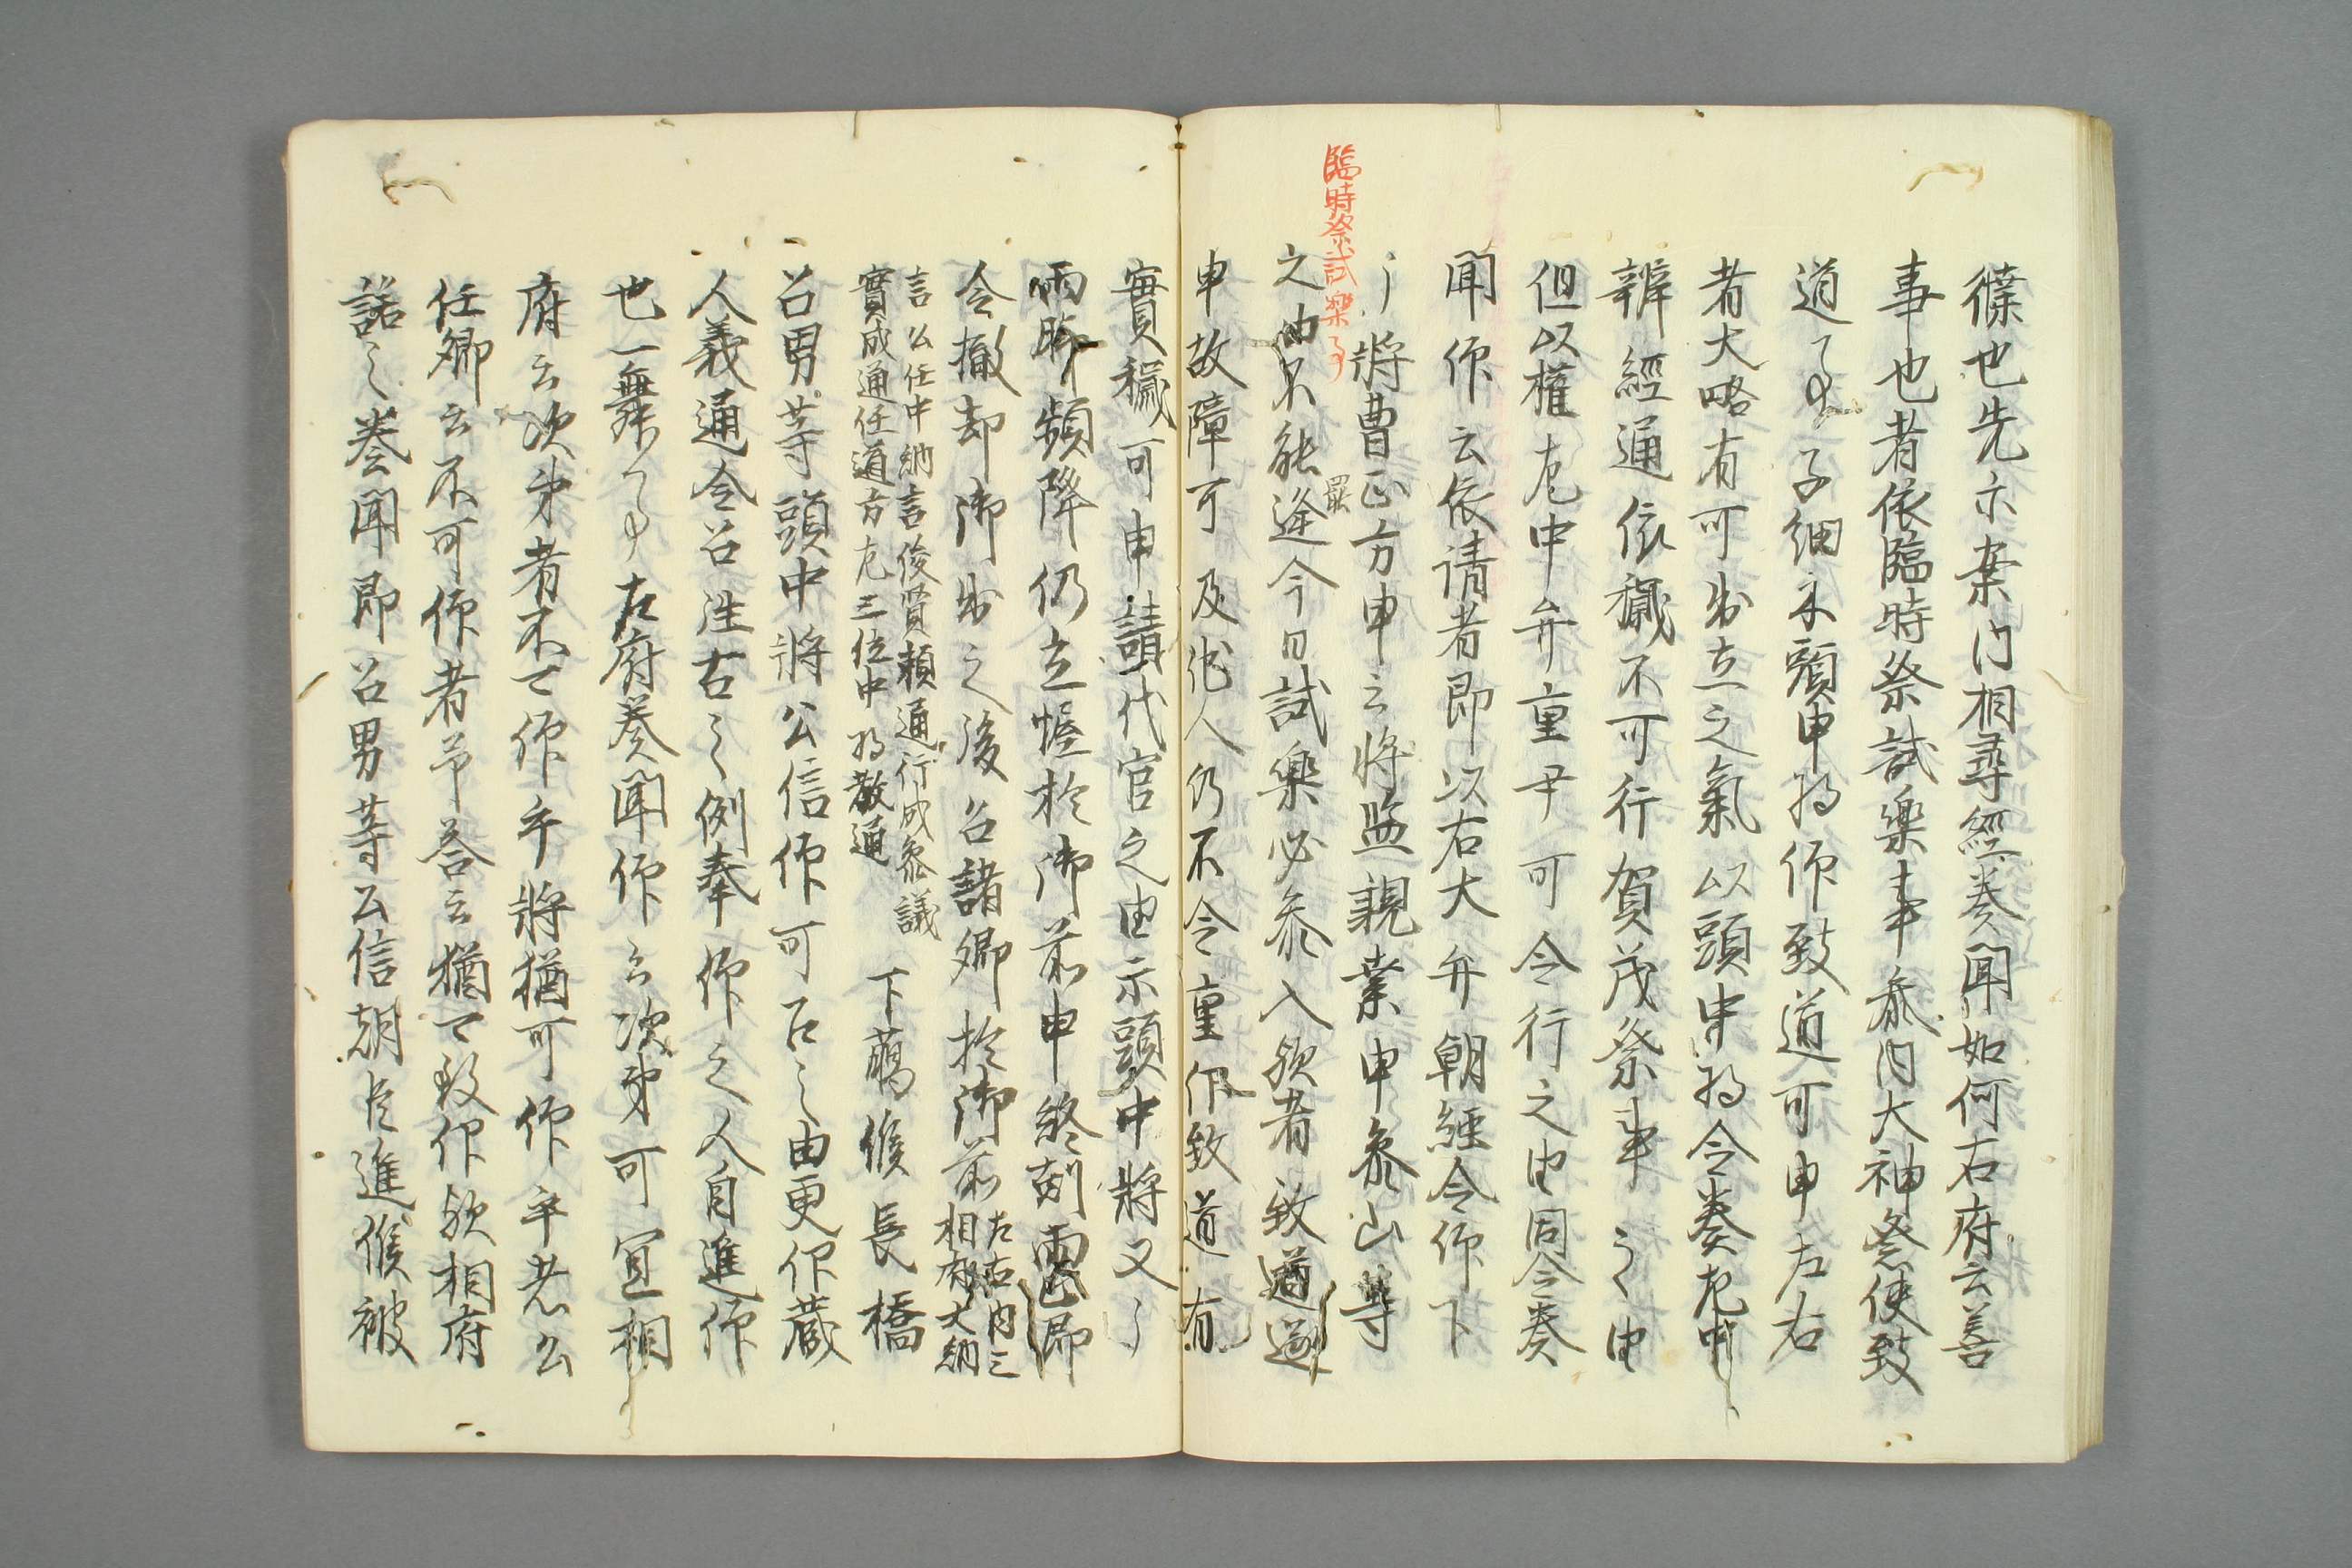 篠也先立案内相尋經奏聞如何右府云善
事也者依臨時祭試樂事參内大神祭使致
道了子細示頭中將仰致道可申左右
者大略有可出立之氣以頭中將令奏左中
辨經通依穢不可行賀茂祭事之由
但以權左中弁重尹可令行之由同令奏
聞仰云依请者即以右大弁朝經令仰下
臨時祭試樂了
將曹正方申云將監親業申參山等
之由不能逢今日試樂必參入欤者致道遁
罷
申故障可及他人仍不令重仰致道有
實穢可申請代官之由示頭中將又
雨脚頻降仍立幄於御前申終剋霽即
令撤却御出之後召諸卿於御前
左右内三
相府大納
言公任中納言俊賢頼通行成參議
實成通任道方左三位中將教通
下﨟候長橋
召男等頭中將公信仰可召之由更仰蔵
人義通令召往古之例奉仰之人自進仰
也一舞了右府奏聞仰云次第可宜相
府云次第者不可仰乎將猶可仰乎者公
任卿云不可仰者予答云猶可致仰欤相府
諾之奏聞即召男等公信朝臣進候被